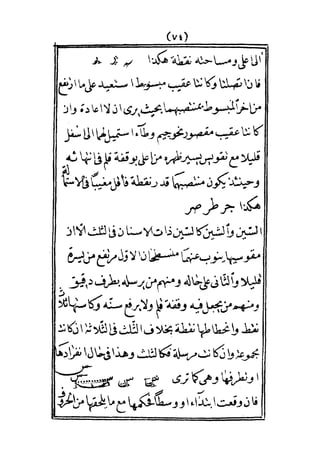 (٧٤)
الى اعلى ومساحته نقطة هكذا
فان اتصلتا وكانتا عقيب مبسوط استعيد على ما ارتفع
من اخر المبسوط منتصبهما بحيث يرى ان لا اعادة وان
كانتا عقيب مقصور كجوجيم وطاء استميل لهما الى اسفل
قليلا مع تقويس يسير نظهره من اعلى بوقفة قلم في انتهائه
وحينئذ يكون منتصبهما قدر نقطة فاقل مغيبا في الاستلقاء
هكذا جر طر صر
السين والشين كالسين ذات الاسنان في الثلث الا ان
مقوسيها ينوب عنهما منسطحان الاول مرتفع من يسرة
قليلا والثاني على حاله ومنهم من يرسله بطرف دقيق
ومنهم من يجعل فيه وقفة قلم ولا يرفع سنه وكاسها ثلاث
نقط وانحطاطها نقطة بخلاف الثلث في الثلاثة ان كانت
مجموعة وان كانت مرسلة فكالثلث وهذا في حال انفرادها
او تطرفها وهى كما ترى
فان وقعت ابتداء او وسطا فحكمها مع ما يلحقها من الحروف